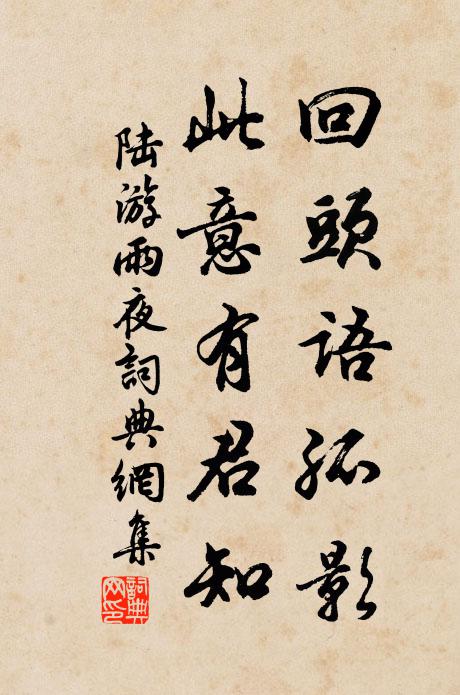 回頭語孤影
此意有君知
陸游雨夜詞典網集
詞典網印